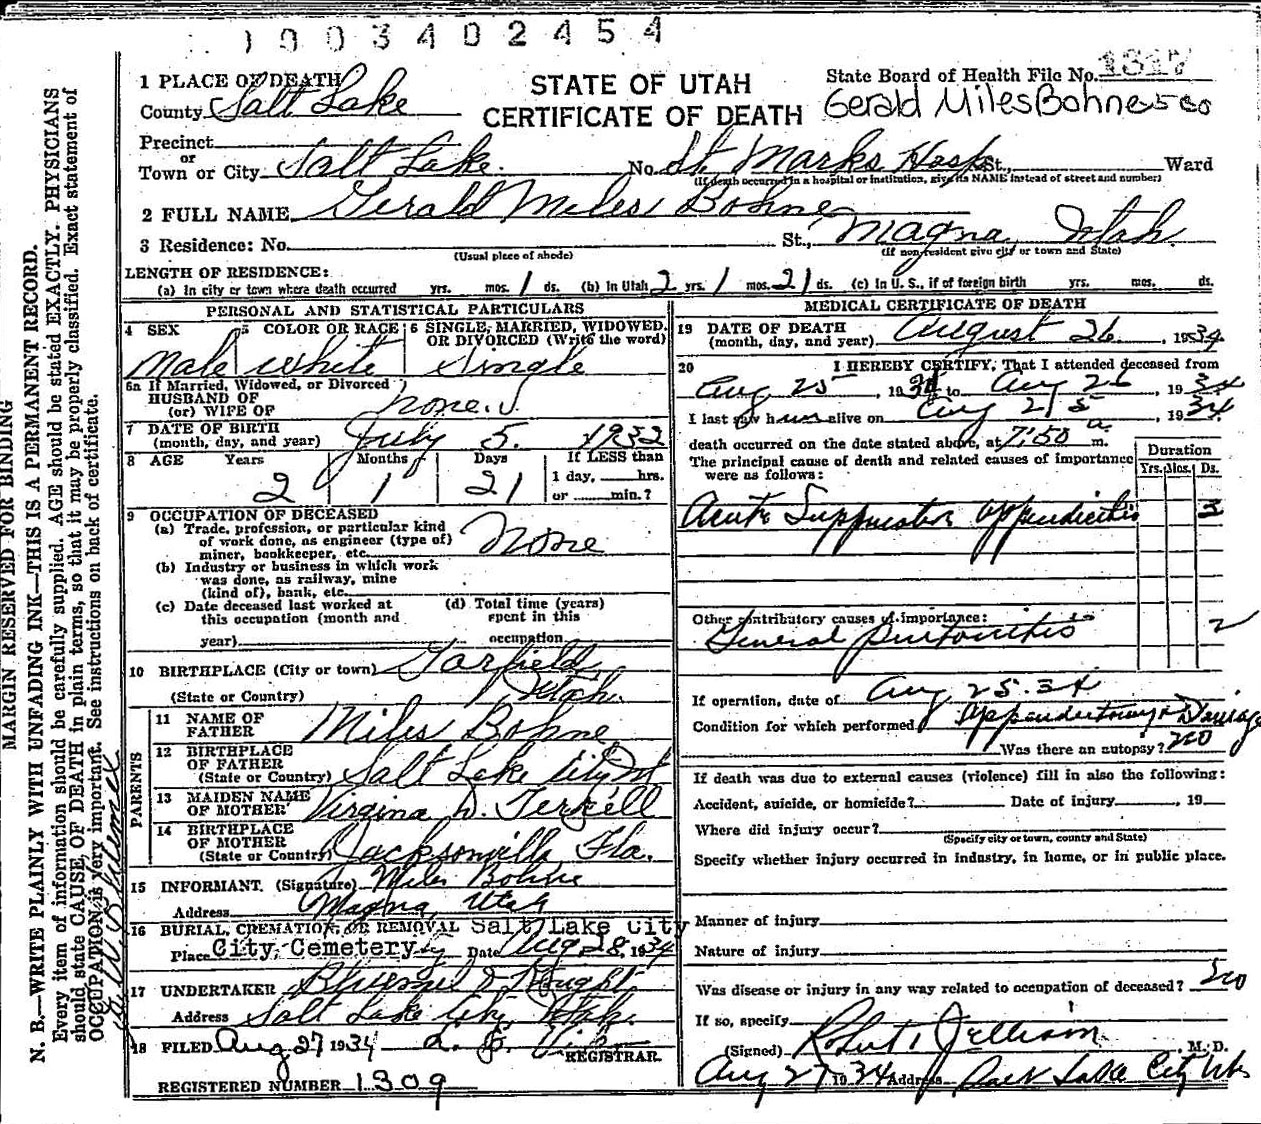 1003402454
STATE OF UTAH
CERTIFICATE OF DEATH
State Board of Health File No. 1317
Gerald Miles Bohne
1 PLACE OF DEATH
County Salt Lake
Precinct
or
Town or City Salt Lake. No. St. Marks Hosp St., Ward
(If death occurred in a hospital or institution, give its NAME instead of street and number)
2 FULL NAME Gerald Miles Bohne
3 Residence: No. St., Magna, Utah
(Usual place of abode) (If non-resident give city or town and State)
LENGTH OF RESIDENCE:
(a) In city or town where death occurred yrs. mos. 1 ds. (b) In Utah 2 yrs. 1 mos. 21 ds. (c) In U. S., if of foreign birth yrs. mos. ds.
PERSONAL AND STATISTICAL PARTICULARS
4 SEX 5 COLOR OR RACE 6 SINGLE, MARRIED, WIDOWED, OR DIVORCED (Write the word)
Male White Single
6a If Married, Widowed, or Divorced
HUSBAND OF
(or) WIFE OF None.
7 DATE OF BIRTH
(month, day, and year) July 5. 1932
8 AGE Years Months Days If LESS than
2 1 21 1 day, hrs.
or min.?
9 OCCUPATION OF DECEASED
(a) Trade, profession, or particular kind
of work done, as engineer (type of)
miner, bookkeeper, etc. None
(b) Industry or business in which work
was done, as railway, mine
(kind of), bank, etc.
(c) Date deceased last worked at (d) Total time (years)
this occupation (month and spent in this
year) occupation
10 BIRTHPLACE (City or town) Garfield,
(State or Country) Utah.
PARENTS
11 NAME OF
FATHER Miles Bohne
12 BIRTHPLACE
OF FATHER
(State or Country) Salt Lake City Ut
13 MAIDEN NAME
OF MOTHER Virginia D. Terkell
14 BIRTHPLACE
OF MOTHER
(State or Country) Jacksonville, Fla.
15 INFORMANT. (Signature) Miles Bohne
Address Magna, Utah
16 BURIAL, CREMATION, OR REMOVAL Salt Lake City
Place City Cemetery Date Aug 28, 1934
17 UNDERTAKER
Address Salt Lake City Utah.
18 FILED Aug 27 1934
REGISTRAR.
REGISTERED NUMBER 1309
MEDICAL CERTIFICATE OF DEATH
19 DATE OF DEATH
(month, day, and year) August 26, 1934
20 I HEREBY CERTIFY, That I attended deceased from
Aug 25 1934 to Aug 26, 1934
I last saw him alive on Aug 25, 1934
death occurred on the date stated above, at 7:50 a m.
The principal cause of death and related causes of importance
were as follows:
Duration
Yrs. Mos. Ds.
Acute Suppurative appendicitis 3
Other contributory causes of importance:
General peritonitis 2
If operation, date of Aug 25.34
Condition for which performed Appendectomy & Drainage
Was there an autopsy? no
If death was due to external causes (violence) fill in also the following:
Accident, suicide, or homicide? Date of injury , 19
Where did injury occur?
(Specify city or town, county and State)
Specify whether injury occurred in industry, in home, or in public place.
Manner of injury
Nature of injury
Was disease or injury in any way related to occupation of deceased? no
If so, specify
(Signed) Robert M. D.
Aug 27 1934 Address Salt Lake City Utah
MARGIN RESERVED FOR BINDING
N. B.—WRITE PLAINLY WITH UNFADING INK—THIS IS A PERMANENT RECORD.
Every item of information should be carefully supplied. AGE should be stated EXACTLY. PHYSICIANS
should state CAUSE OF DEATH in plain terms, so that it may be properly classified. Exact statement of
OCCUPATION is very important. See instructions on back of certificate.